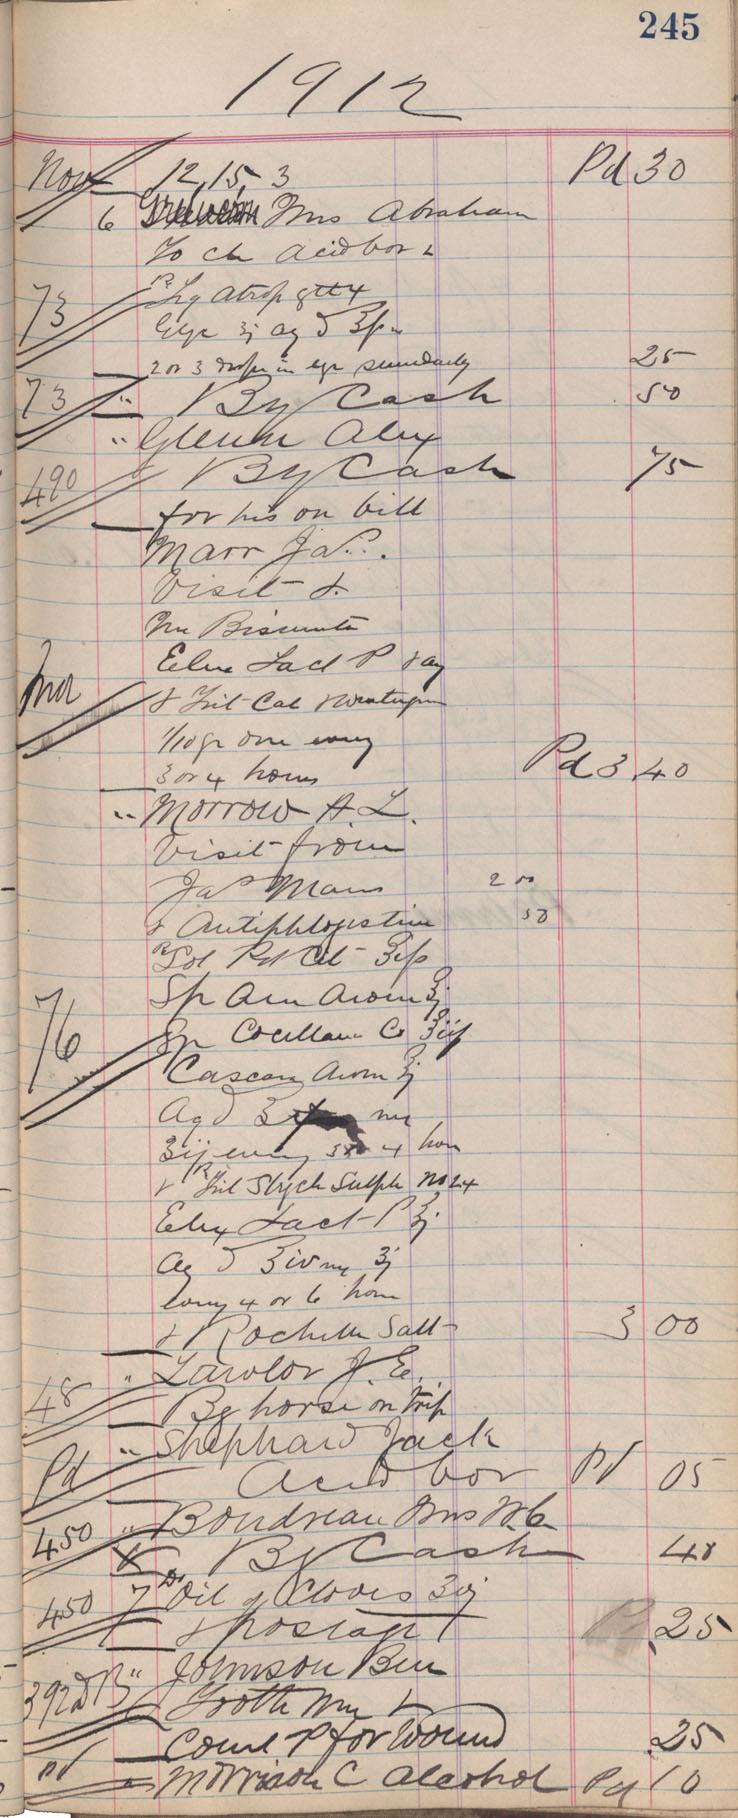 245
1912
Nov 12, 15, 3 Pd 30
6 Mrs Abraham
To ch Acid bor &
73 Rx Lq atrop gtt 4
Glyc ʒj aq
2 or 3 drops in eye 25
73 " By Cash 50
" Glenn Alex
490 By Cash 75
for his on bill
Marr Jas.
Visit &
Mr Bismuth
Elix Lact P & aq
& Trit Cal
1/10 gr one every
3 or 4 hours Pd 3.40
" Morrow A. L.
Visit from
Jas Marr 2 00
& Antiphlogistine 50
Rx Sol Pot Cit
76 Sp Am Arom ʒj
Cascara Arom ʒj
Aq
ʒij every 3 or 4 hour
& Rx Trit Strych Sulph no 24
Elix Lact P ʒj
Aq ʒiv ʒj
every 4 or 6 hour
& Rochelle Salt 3 00
48 " Lawlor J. E.
By horse on trip
Pd " Shephard Jack
Acid bor Pd 05
450 " Boudreau Mrs W. C.
X By Cash 40
450 7 Oil of Cloves
& postage 25
392 B " Johnson Ben
Tooth &
Comp P for Wound .25
Pd " Morrison C Alcohol Pd 10